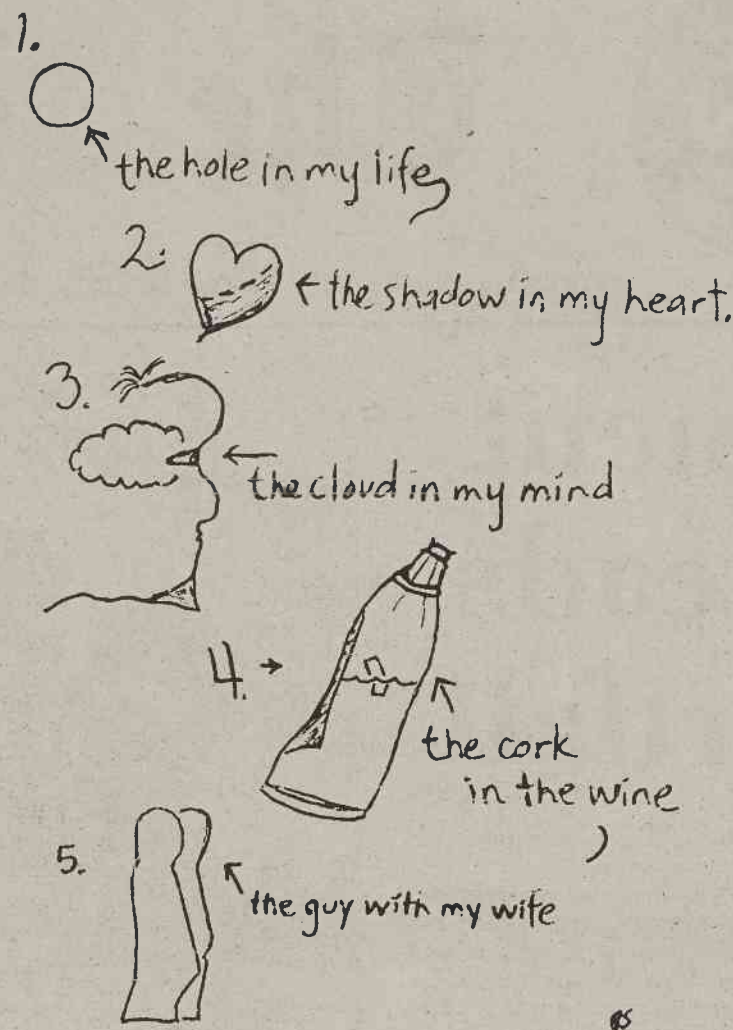 1.
the hole in my life,
2.
the shadow in my heart.
3.
the cloud in my mind
4.
the cork
in the wine
5.
the guy with my wife